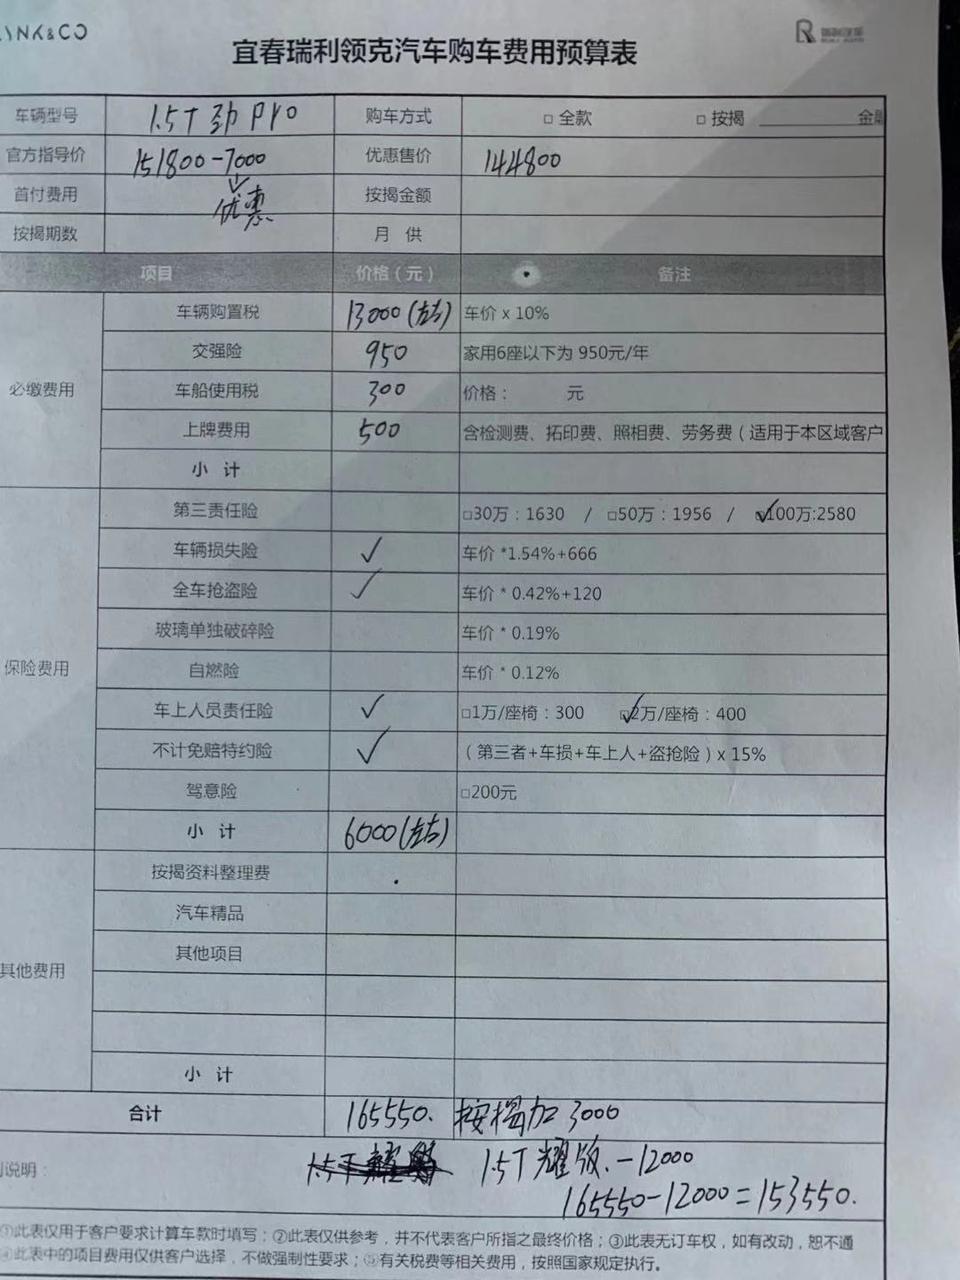 LYNK&CO
宜春瑞利领克汽车购车费用预算表
车辆型号 1.5T 劲 Pro 购车方式 □全款 □按揭
官方指导价 151800-7000 优惠售价 144800
首付费用 优惠 按揭金额
按揭期数 月 供
项目 价格（元） 备注
车辆购置税 13000(左右) 车价 x 10%
交强险 950 家用6座以下为 950元/年
必缴费用 车船使用税 300 价格： 元
上牌费用 500 含检测费、拓印费、照相费、劳务费（适用于本区域客户
小 计
第三责任险 □30万：1630 / □50万：1956 / ☑100万:2580
车辆损失险 ✓ 车价 *1.54%+666
全车抢盗险 ✓ 车价 * 0.42%+120
玻璃单独破碎险 车价 * 0.19%
保险费用 自燃险 车价 * 0.12%
车上人员责任险 ✓ □1万/座椅：300 ☑2万/座椅：400
不计免赔特约险 ✓ （第三者+车损+车上人+盗抢险）x 15%
驾意险 □200元
小 计 6000(左右)
按揭资料整理费
汽车精品
其他费用 其他项目
小 计
合计 165550. 按揭加3000
说明： 1.5T 耀版.-12000
165550-12000=153550.
①此表仅用于客户要求计算车款时填写；②此表仅供参考，并不代表客户所指之最终价格；③此表无订车权，如有改动，恕不通
④此表中的项目费用仅供客户选择，不做强制性要求；⑤有关税费等相关费用，按照国家规定执行。